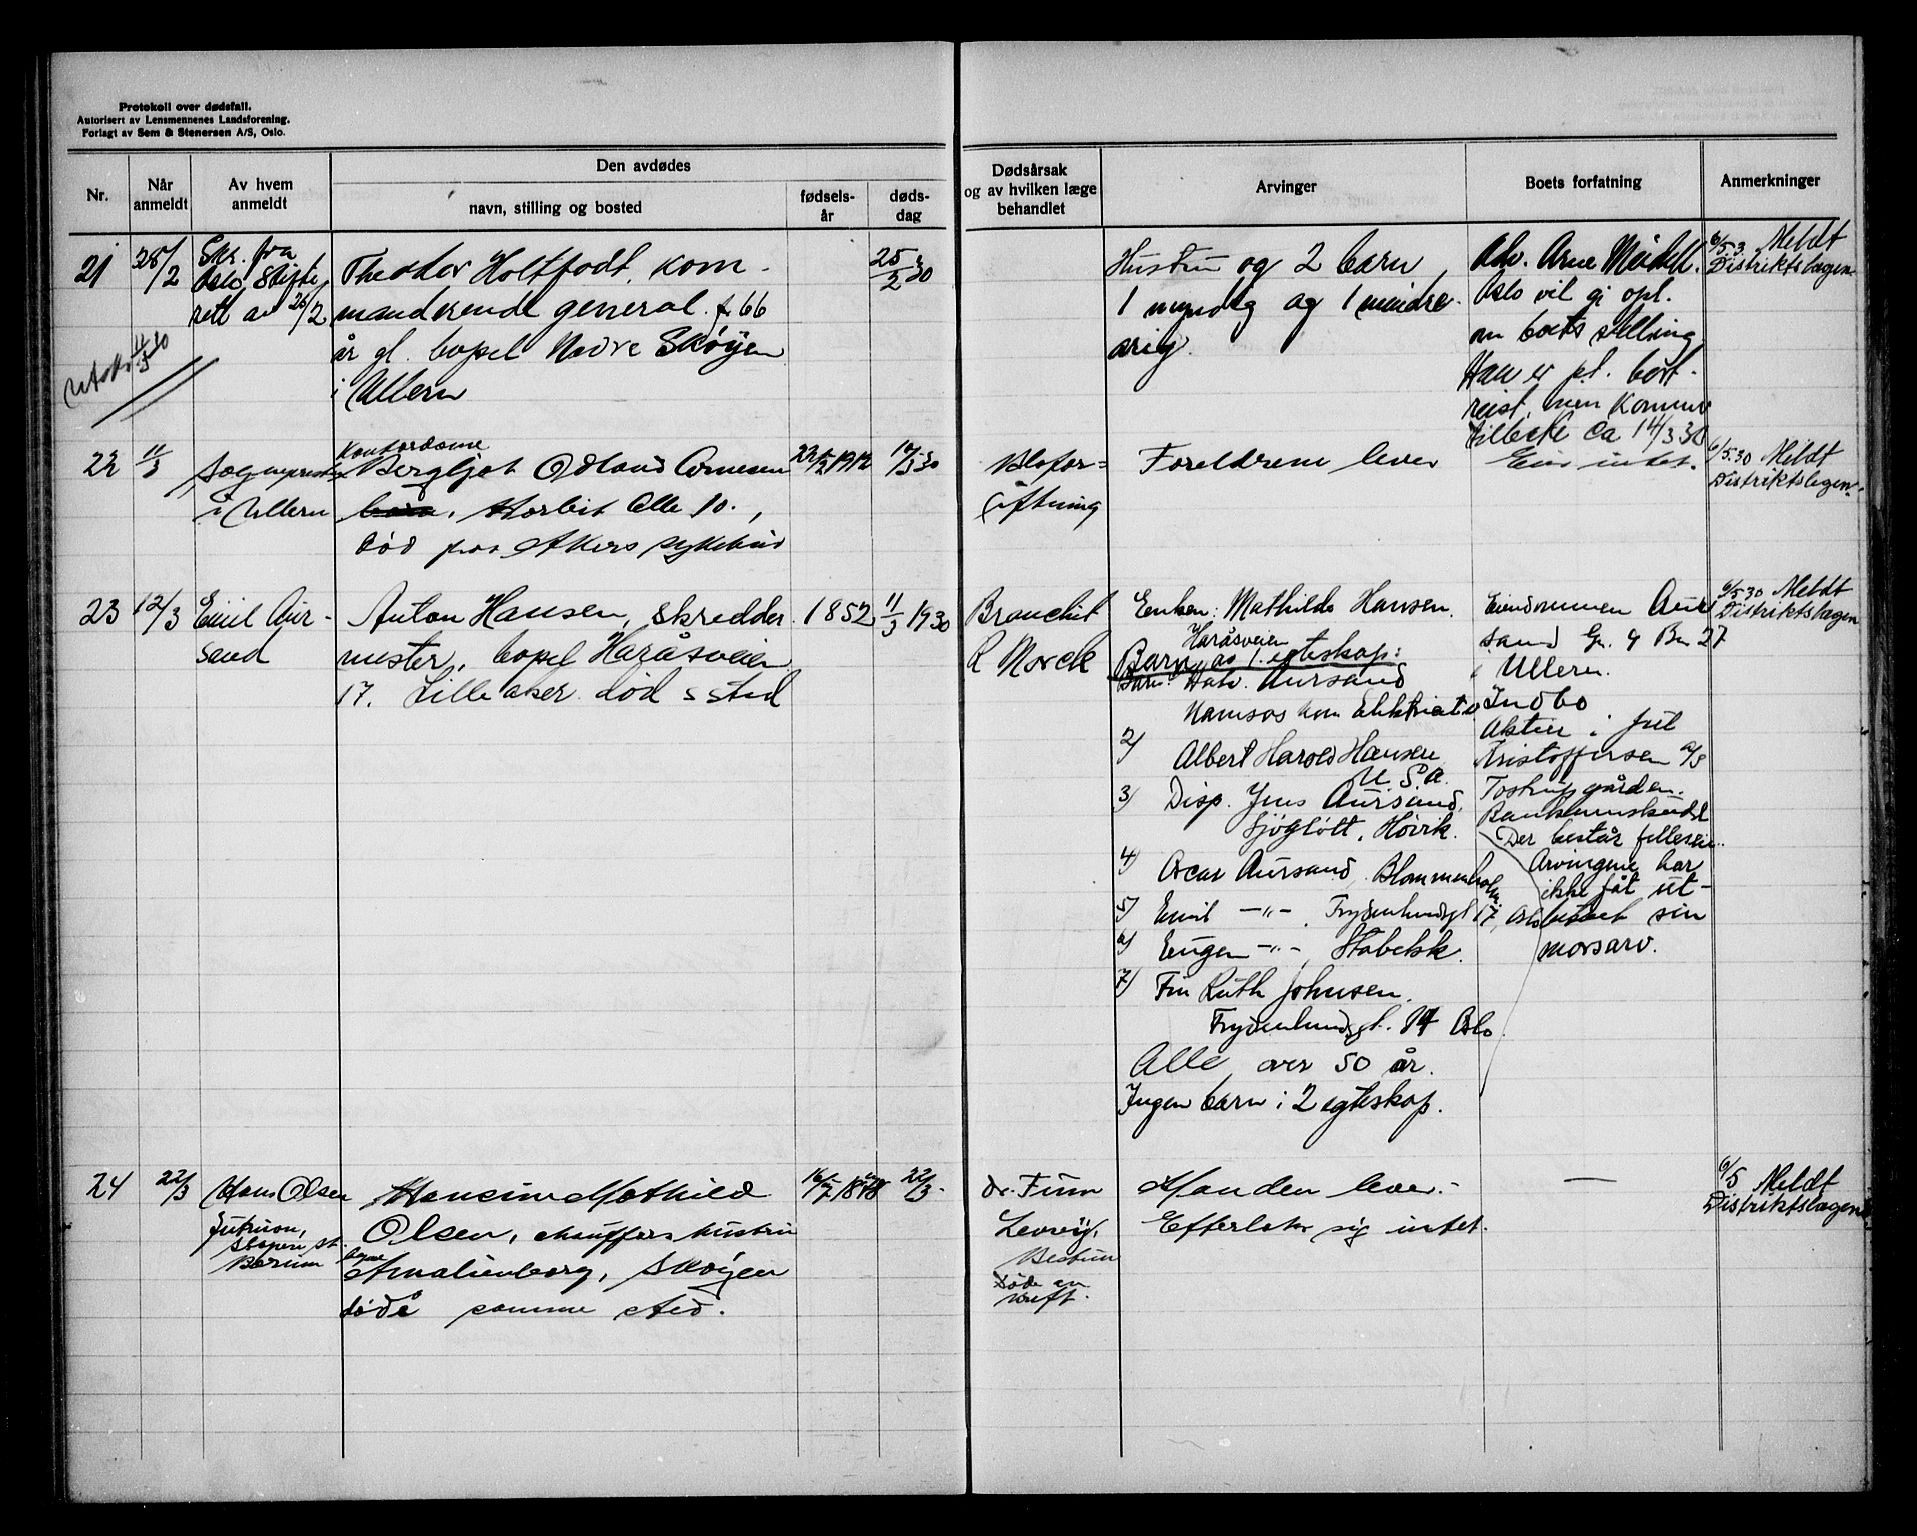 Protokoll over dødsfall.
Autorisert av Lensmennenes Landsforening.
Forlagt av Sem & Stenersen A/S, Oslo.
Nr.
Når
anmeldt
Av hvem
anmeldt
Den avdødes
navn, stilling og bosted
fødsels-
år
døds-
dag
Dødsårsak
og av hvilken læge
behandlet
Arvinger
Boets forfatning
Anmerkninger
21
25/2
Skr. fra
Oslo Skifte
rett av 26/2
Theodor Holtfodt, kom-
manderende general. f 66
år gl. bopel Nedre Skøyen
i Ullern
25/2 30
Hustru og 2 barn,
1 myndig og 1 mindre-
årig.
Adv. Arne Meidell.
Oslo vil gi opl.
om boets stilling
Han er pt. bort-
reist, men kommer
tilbake ca 14/3 30
6/5.3 Meldt
Distriktslægen.
22
11/3
Sognepresten
i Ullern
Kontordame
Bergljot Odland Arnesen
barn. Harbit Alle 10.,
død paa Akers sykehus
1912
Blofor=
giftning
Foreldrene lever
Eier intet.
6/5.30 Meldt
Distriktslegen.
23
12/3
Emil Aur-
sand
Anton Hansen, skredder
mester, bopel Haråsveien
17. Lilleaker død s sted
1852
11/3 1930
Bronchit
R Morck
Enken: Mathilde Hansen.
Haråsveien
Barn av 1. egteskap:
Barn: Halv. Aursand
Namsos kom Elektriat
2) Albert Harold Hansen
U.S.A.
3) Disp. Jens Aursand,
Sjøgløtt, Høvik.
4) Oscar Aursand, Blommenholm
5) Emil -"- Frydenlundsgt 17, Oslo
6) Eugen -"-, Stabekk.
7) Fru Ruth Johnsen.
Frydenlundsgt. 14 Oslo.
Alle over 50 år.
Ingen barn i 2 egteskap.
Eiendommen Aur
sand Gr. 9 Bn 27
i Ullern.
Indbo
Aktier i Juel
Kristoffersen A/S
Tostrupgården.
Bankinnskudd
Der består felleseie.
Arvingene har
ikke fåt ut-
betalt sin
morsarv.
6/5.30 Meldt
Distriktslægen
24
22/3
Hans Olsen
Bærum
Hansine Mathilde
Olsen, chaufførs hustru
Amalienborg, Skøyen
døde samme sted.
22/3.
dr. Finn
Bestum
Manden lever.-
Efterlater sig intet.
—
6/5 Meldt
Distriktslægen